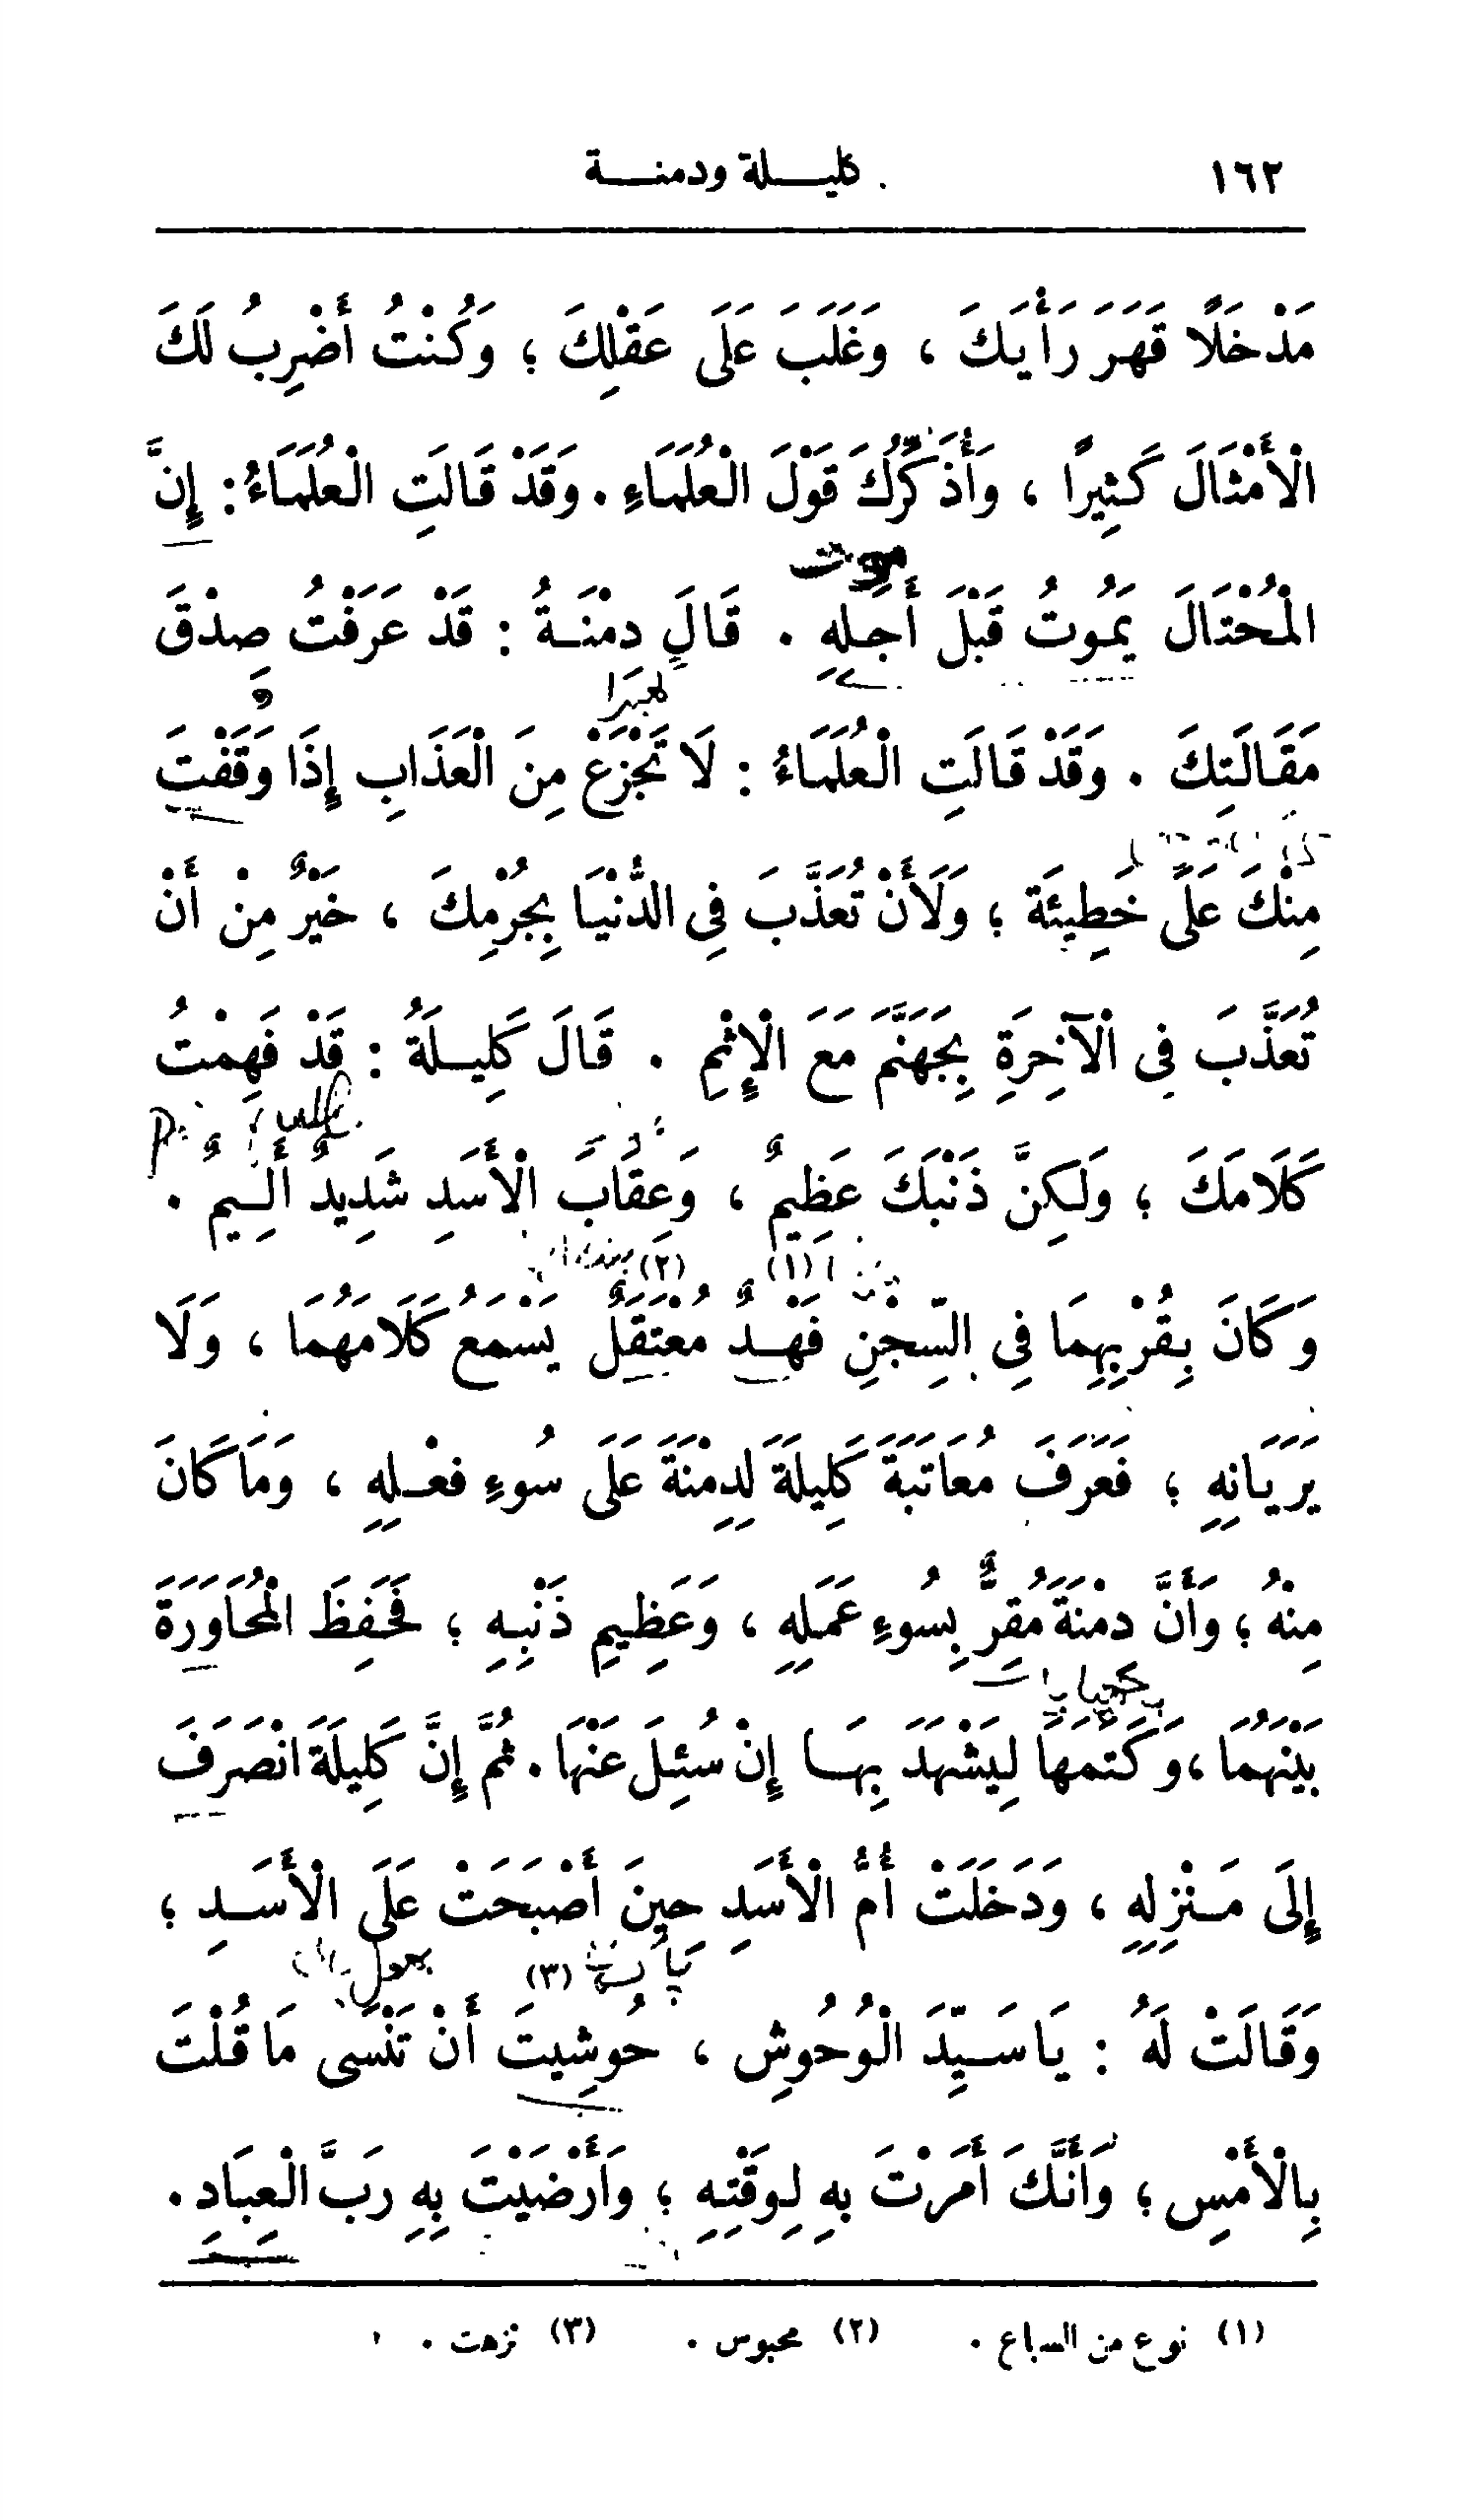 ١٦٢ كليـــلة ودمنـــة
مَدْخَلًا قَهَرَ رَأْيَكَ ، وَغَلَبَ عَلَى عَقْلِكَ ؛ وَكُنْتُ أَضْرِبُ لَكَ
الْأَمْثَالَ كَثِيرًا ، وَأُذَكِّرُكَ قَوْلَ الْعُلَمَاءِ . وَقَدْ قَالَتِ الْعُلَمَاءُ : إِنَّ
موت
الْمُحْتَالَ يَمُوتُ قَبْلَ أَجَلِهِ . قَالَ دِمْنَـةُ : قَدْ عَرَفْتُ صِدْقَ
مَقَالَتِكَ . وَقَدْ قَالَتِ الْعُلَمَاءُ : لَا تَجْزَعْ مِنَ الْعَذَابِ إِذَا وَقَفْتَ
مِنْكَ عَلَى خَطِيئَة ؛ وَلَأَنْ تُعَذَّبَ فِى الدُّنْيَا بِجُرْمِكَ ، خَيْرٌ مِنْ أَنْ
تُعَذَّبَ فِى الْآخِرَةِ بِجَهَنَّمَ مَعَ الْإِثْمِ . قَالَ كَلِيـلَةُ : قَدْ فَهِمْتُ
كَلَامَكَ ؛ وَلَـكِنَّ ذَنْبَكَ عَظِيمٌ ، وَعِقَابَ الْأَسَدِ شَدِيدٌ أَلِـيمٌ .
وَكَانَ بِقُرْبِهِمَا فِى السِّجْنِ فَهْـدٌ (١) مُعْتَقَلٌ (٢) يَسْمَعُ كَلَامَهُمَا ، وَلَا
يَرَيَانِهِ ؛ فَعَرَفَ مُعَاتَبَةَ كَلِيلَةَ لِدِمْنَةَ عَلَى سُوءِ فِعْـلِهِ ، وَمَا كَانَ
مِنْهُ ؛ وَأَنَّ دِمْنَةَ مُقِرٌّ بِسُوءِ عَمَلِهِ ، وَعَظِيمِ ذَنْبِـهِ ؛ فَحَفِظَ الْمُحَاوَرَةَ
بَيْنَهُمَا ، وَكَتَمَهَا لِيَشْهَدَ بِهَـا إِنْ سُئِلَ عَنْهَا . ثُمَّ إِنَّ كَلِيلَةَ انْصَرَفَ
إِلَى مَـنْزِلِهِ ، وَدَخَلَتْ أُمُّ الْأَسَدِ حِينَ أَصْبَحَتْ عَلَى الْأَسَـدِ ؛
وَقَالَتْ لَهُ : يَا سَـيِّدَ الْوُحُوشِ ، حُوشِيتَ (٣) أَنْ تَنْسَى مَا قُلْتَ
بِالْأَمْسِ ؛ وَأَنَّكَ أَمَرْتَ بِهِ لِـوَقْتِهِ ؛ وَأَرْضَيْتَ بِهِ رَبَّ الْعِبَادِ .
(١) نوع من السباع . (٢) محبوس . (٣) نزهت .